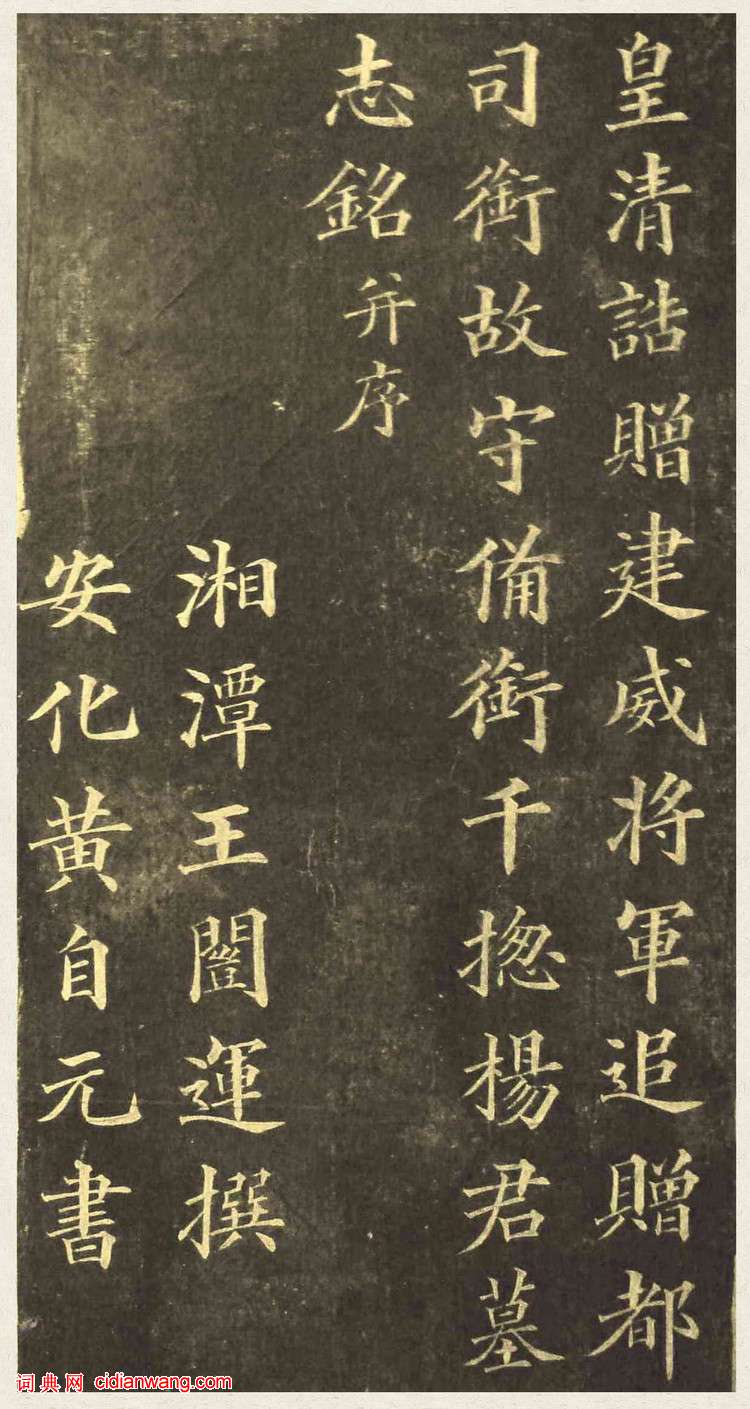 皇清誥贈建威将軍追贈都
司銜故守俻銜千揔楊君墓
志銘并序
湘潭王闓運撰
安化黄自元書
词典网 cidianwang.com